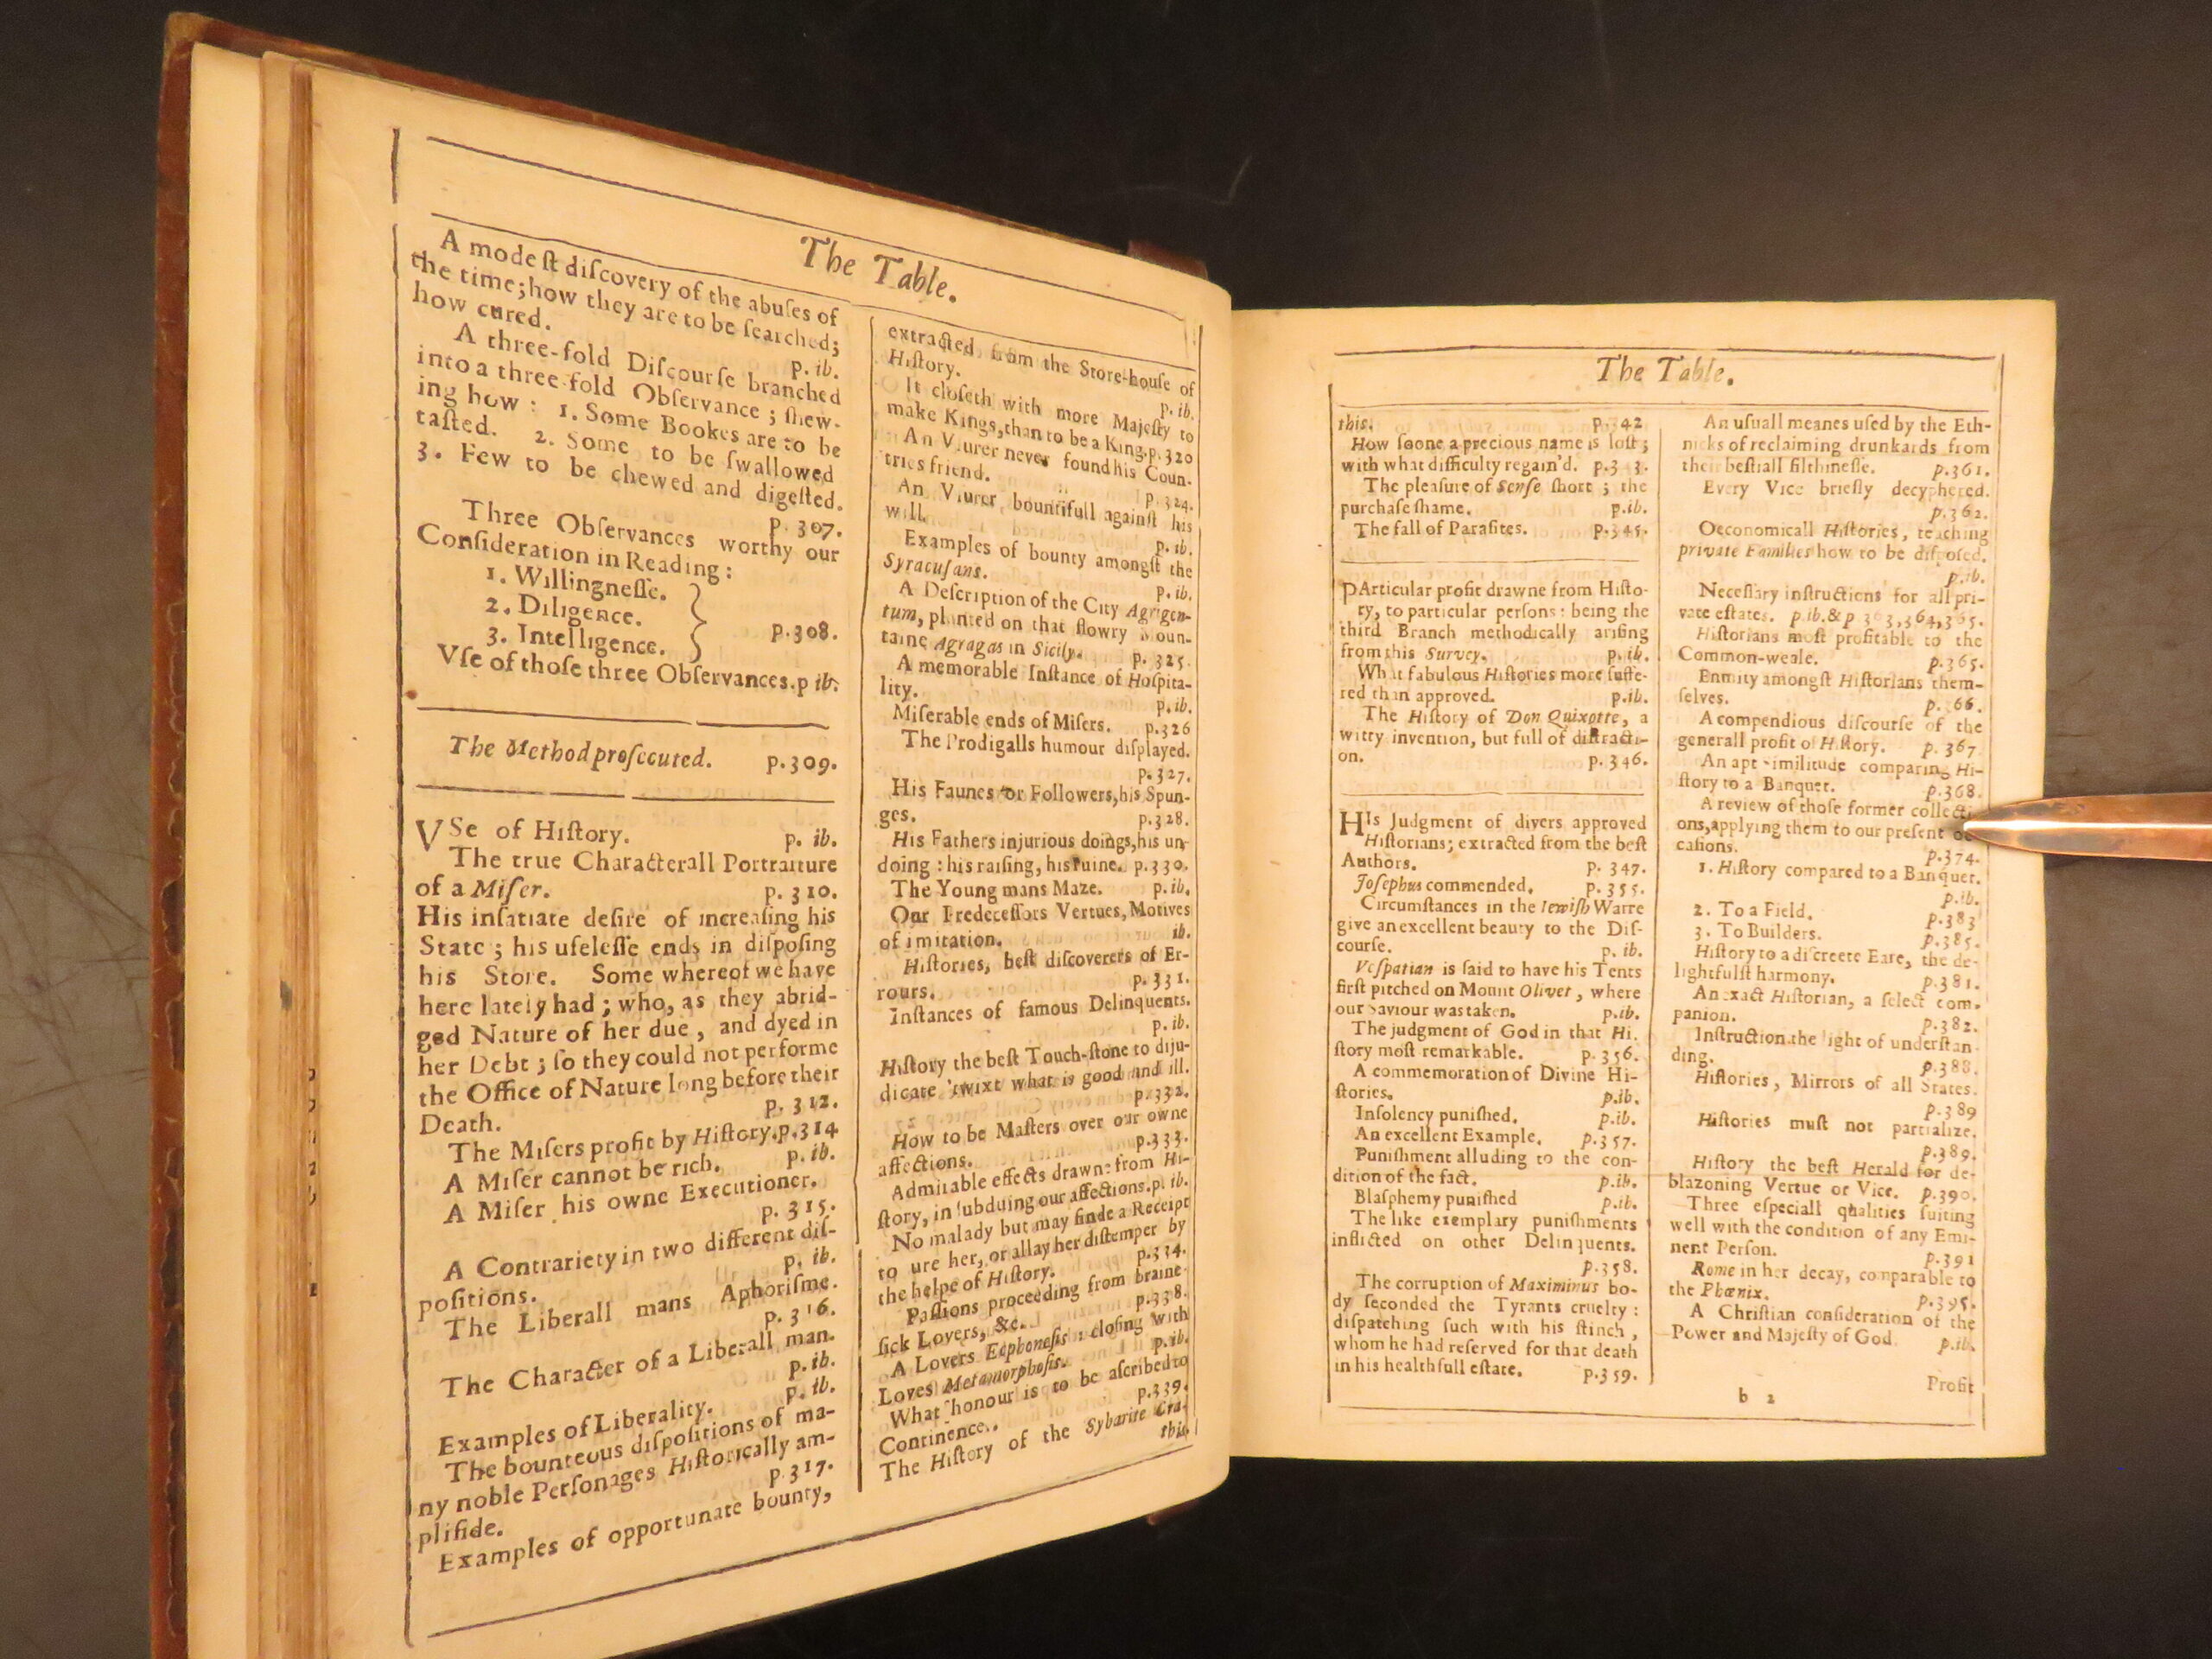 The Table.
A modeſt diſcovery of the abuſes of
the time; how they are to be ſearched;
how cured.
p. ib.
A three-fold Diſcourſe branched
into a three-fold Obſervance; ſhew-
ing how: 1. Some Bookes are to be
taſted. 2. Some to be ſwallowed
3. Few to be chewed and digeſted.
p. 307.
Three Obſervances worthy our
Conſideration in Reading:
1. Willingneſſe.
2. Diligence.
3. Intelligence.
p. 308.
Vſe of thoſe three Obſervances. p ib.
The Method proſecuted. p. 309.
VSe of Hiſtory. p. ib.
The true Characterall Portraiture
of a Miſer. p. 310.
His inſatiate deſire of increaſing his
State; his uſeleſſe ends in diſpoſing
his Store. Some whereof we have
here lately had; who, as they abrid-
ged Nature of her due, and dyed in
her Debt; ſo they could not performe
the Office of Nature long before their
Death. p. 312.
The Miſers profit by Hiſtory. p. 314
A Miſer cannot be rich. p. ib.
A Miſer his owne Executioner.
p. 315.
A Contrariety in two different diſ-
poſitions. p. ib.
The Liberall mans Aphoriſme.
p. 316.
The Character of a Liberall man.
p. ib.
Examples of Liberality. p. ib.
The bounteous diſpoſitions of ma-
ny noble Perſonages Hiſtorically am-
plifide. p. 317.
Examples of opportunate bounty,
extracted from the Store-houſe of
Hiſtory. p. ib.
It cloſeth with more Majeſty to
make Kings, than to be a King. p. 320
An Vſurer never found his Coun-
tries friend. p. 324.
An Vſurer bountifull againſt his
will. p. ib.
Examples of bounty amongſt the
Syracuſans. p. ib.
A Deſcription of the City Agrigen-
tum, planted on that flowry Moun-
taine Agragas in Sicily. p. 325.
A memorable Inſtance of Hoſpita-
lity. p. ib.
Miſerable ends of Miſers. p. 326
The Prodigalls humour diſplayed.
p. 327.
His Faunes or Followers, his Spun-
ges. p. 328.
His Fathers injurious doings, his un-
doing: his raiſing, his ruine. p. 330.
The Young mans Maze. p. ib.
Our Predeceſſors Vertues, Motives
of imitation. ib.
Hiſtories, beſt diſcoverers of Er-
rours. p. 331.
Inſtances of famous Delinquents.
p. ib.
Hiſtory the beſt Touch-ſtone to diju-
dicate 'twixt what is good and ill.
p. 332.
How to be Maſters over our owne
affections. p. 333.
Admirable effects drawne from Hi-
ſtory, in ſubduing our affections. p. ib.
No malady but may finde a Receipt
to ure her, or allay her diſtemper by
the helpe of Hiſtory. p. 334.
Paſſions proceeding from braine-
ſick Lovers, &c. p. 338.
A Lovers Ecphoneſis: cloſing with
Loves Metamorphoſis. p. ib.
What honour is to be aſcribed to
Continence. p. 339.
The Hiſtory of the Sybarite Cra-
this.
The Table.
this. p. 342
How ſoone a precious name is loſt;
with what difficulty regain'd. p. 343.
The pleaſure of Senſe ſhort; the
purchaſe ſhame. p. ib.
The fall of Paraſites. p. 345.
PArticular profit drawne from Hiſto-
ry, to particular perſons: being the
third Branch methodically ariſing
from this Survey. p. ib.
What fabulous Hiſtories more ſuffe-
red than approved. p. ib.
The Hiſtory of Don Quixotte, a
witty invention, but full of diſtracti-
on. p. 346.
HIs Judgment of divers approved
Hiſtorians; extracted from the beſt
Authors. p. 347.
Joſephus commended. p. 355.
Circumſtances in the Iewiſh Warre
give an excellent beauty to the Diſ-
courſe. p. ib.
Veſpatian is ſaid to have his Tents
firſt pitched on Mount Olivet, where
our Saviour was taken. p. ib.
The judgment of God in that Hi-
ſtory moſt remarkable. p. 356.
A commemoration of Divine Hi-
ſtories. p. ib.
Inſolency puniſhed. p. ib.
An excellent Example. p. 357.
Puniſhment alluding to the con-
dition of the fact. p. ib.
Blaſphemy puniſhed p. ib.
The like exemplary puniſhments
inflicted on other Delinquents.
p. 358.
The corruption of Maximinus bo-
dy ſeconded the Tyrants cruelty:
diſpatching ſuch with his ſtinch,
whom he had reſerved for that death
in his healthfull eſtate. p. 359.
An uſuall meanes uſed by the Eth-
nicks of reclaiming drunkards from
their beſtiall filthineſſe. p. 361.
Every Vice briefly decyphered.
p. 362.
Oeconomicall Hiſtories, teaching
private Families how to be diſpoſed.
p. ib.
Neceſſary inſtructions for all pri-
vate eſtates. p. ib. & p. 363, 364, 365.
Hiſtorians moſt profitable to the
Common-weale. p. 365.
Enmity amongſt Hiſtorians them-
ſelves. p. 66.
A compendious diſcourſe of the
generall profit of Hiſtory. p. 367
An apt similitude comparing Hi-
ſtory to a Banquet. p. 368.
A review of thoſe former collecti
ons, applying them to our preſent
caſions. p. 374.
1. Hiſtory compared to a Banquet.
p. ib.
2. To a Field. p. 383
3. To Builders. p. 385.
Hiſtory to a diſcreete Eare, the de-
lightfulſt harmony. p. 381.
An exact Hiſtorian, a ſelect com-
panion. p. 382.
Inſtruction the light of underſtan-
ding. p. 388.
Hiſtories, Mirrors of all States.
p. 389
Hiſtories muſt not partialize.
p. 389.
Hiſtory the beſt Herald for de-
blazoning Vertue or Vice. p. 390.
Three eſpeciall qualities ſuiting
well with the condition of any Emi-
nent Perſon. p. 391
Rome in her decay, comparable to
the Phœnix. p. 395.
A Chriſtian conſideration of the
Power and Majeſty of God. p. ib.
b 2
Profit